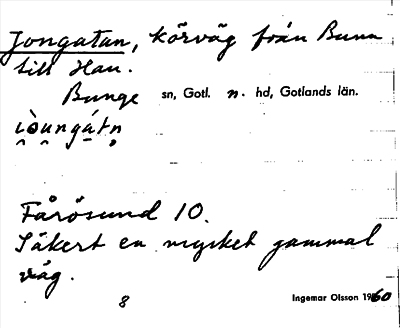 Jongatan, körväg från Bunn
till Hau.
Bunge sn, Gotl. n. hd, Gotlands län.
i̯òu̯ngá̱tn̥
Fårösund 10.
Säkert en mycket gammal
väg.
8 Ingemar Olsson 1960